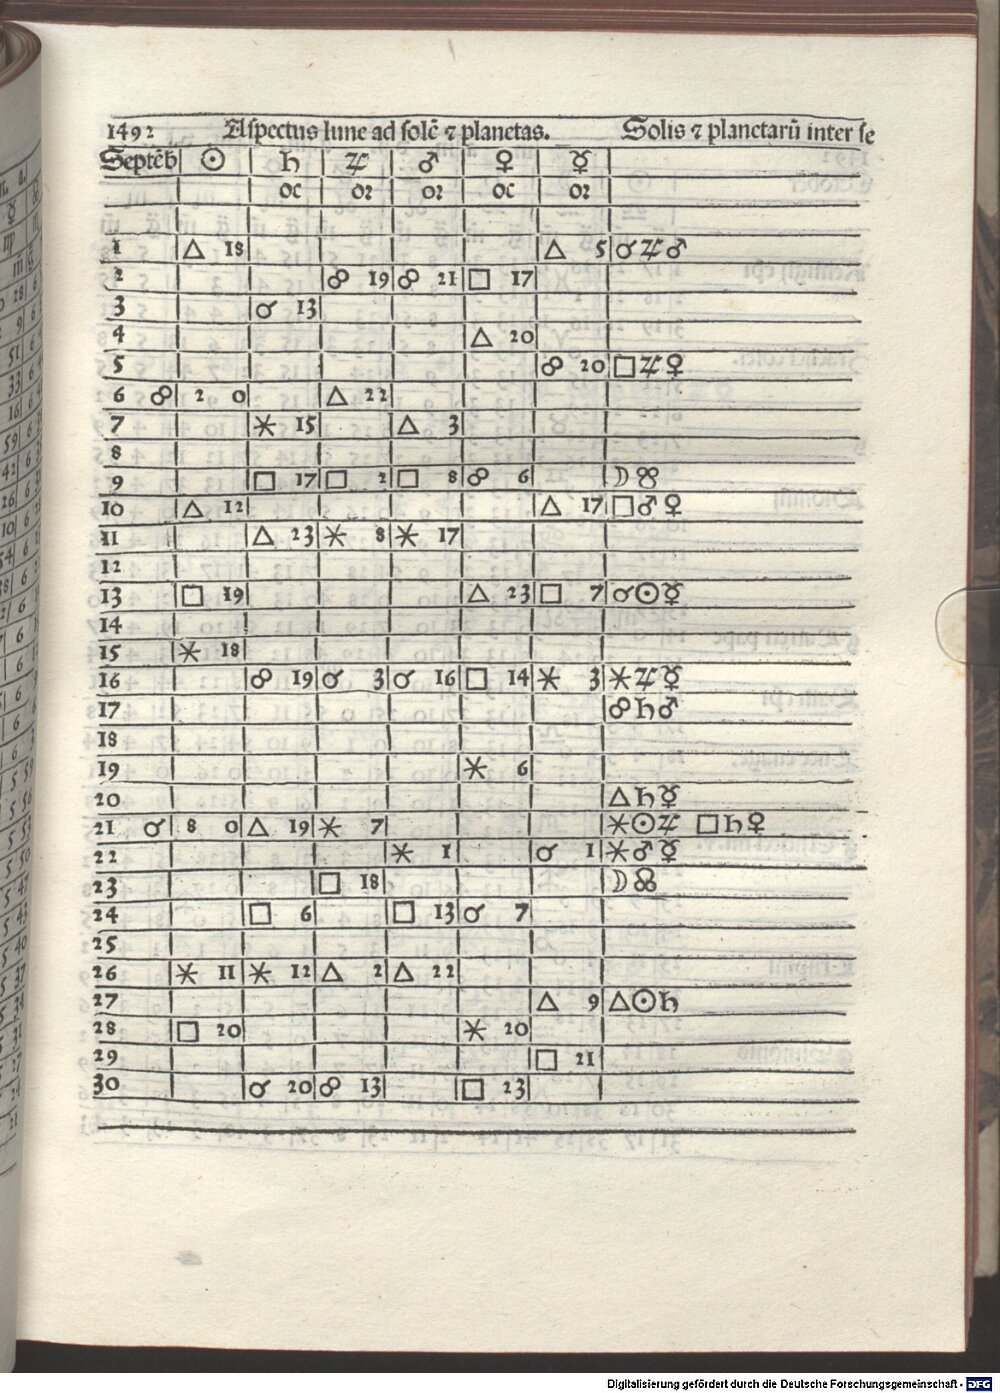 1492 Aspectus lune ad solē ⁊ planetas. Solis ⁊ planetarū inter se
Septēb ☉ ♄ ♃ ♂ ♀ ☿
oc oꝛ oꝛ oc oꝛ
1 △ 18 △ 5 ☌ ♃ ♂
2 ☍ 19 ☍ 21 □ 17
3 ☌ 13
4 △ 20
5 ☍ 20 □ ♃ ♀
6 ☍ 2 0 △ 22
7 ⚹ 15 △ 3
8
9 □ 17 □ 2 □ 8 ☍ 6 ☽
10 △ 12 △ 17 □ ♂ ♀
11 △ 23 ⚹ 8 ⚹ 17
12
13 □ 19 △ 23 □ 7 ☌ ☉ ☿
14
15 ⚹ 18
16 ☍ 19 ☌ 3 ☌ 16 □ 14 ⚹ 3 ⚹ ♃ ☿
17 ☍ ♄ ♂
18
19 ⚹ 6
20 △ ♄ ☿
21 ☌ 8 0 △ 19 ⚹ 7 ⚹ ☉ ♃ □ ♄ ♀
22 ⚹ 1 ☌ 1 ⚹ ♂ ☿
23 □ 18 ☽
24 □ 6 □ 13 ☌ 7
25
26 ⚹ 11 ⚹ 12 △ 2 △ 22
27 △ 9 △ ☉ ♄
28 □ 20 ⚹ 20
29 □ 21
30 ☌ 20 ☍ 13 □ 23
Digitalisierung gefördert durch die Deutsche Forschungsgemeinschaft - DFG